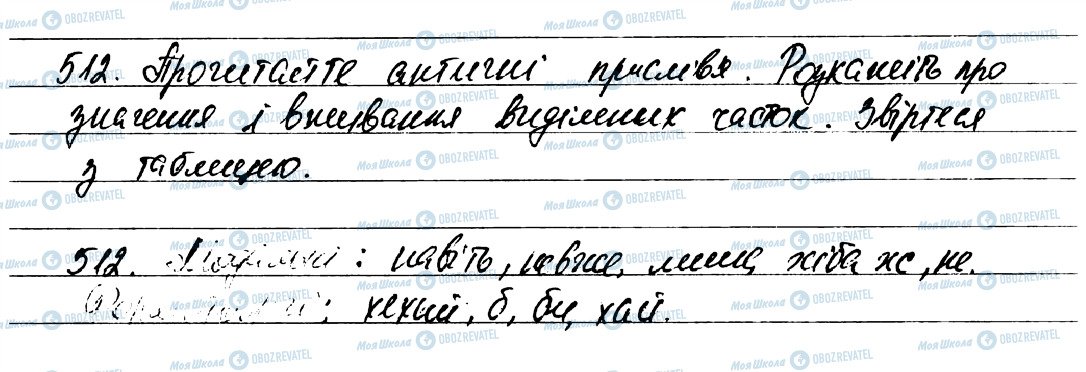 512. Прочитайте античні прислівя. Розкажіть про
значення і вживання виділених часток. Звіртеся
з таблицею.
512. Модальні: навіть, невже, лише, хіба ж, не.
Формотворчі: нехай, б, би, хай.